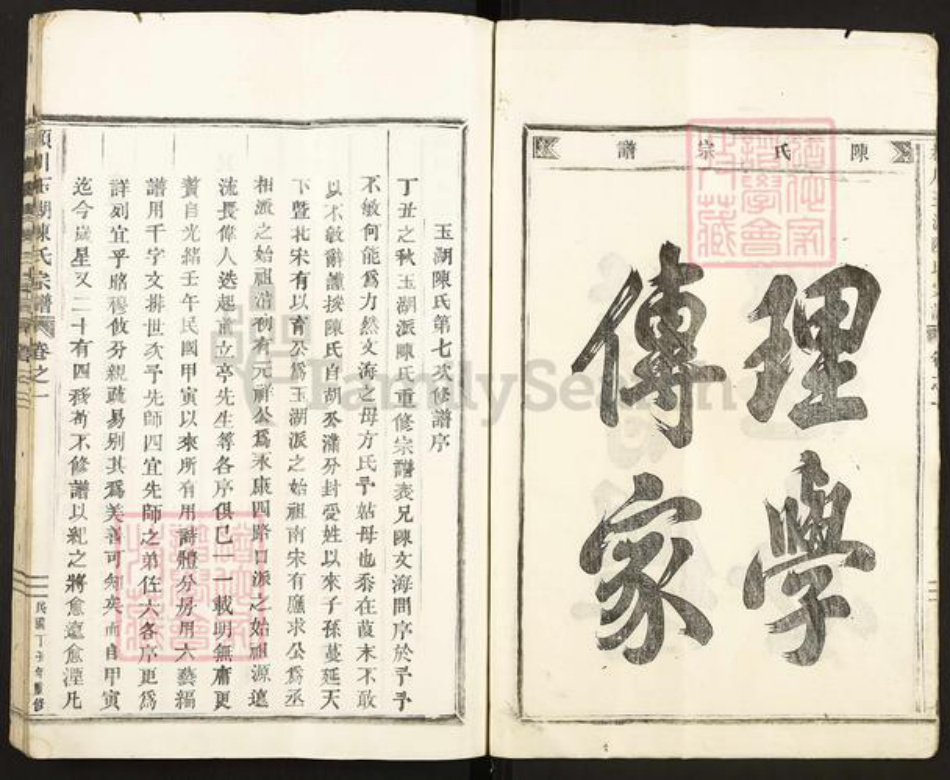 陳氏宗譜
理學
傳家
玉湖陳氏第七次修譜序
丁丑之秋玉湖派陳氏重修宗譜表兄陳文海問序於予予
不敏何能為力然文海之母方氏予姑母也忝在葭末不敢
以不敏辭謹按陳氏自胡公滿分封受姓以來子孫蔓延天
下暨北宋有以育公為玉湖派之始祖南宋有應求公為丞
相派之始祖清初有元祥公為永康四路口派之始祖源遠
流長偉人迭起前立亭先生等各序俱已一一載明無庸更
贅自光緒壬午民國甲寅以來所有用詩體分房用六藝編
譜用千字文排世次予先師四宜先師之弟佐六各序更為
詳列宜乎昭穆攸分親疏易別其為美善可知矣而自甲寅
迄今歲星又二十有四移苟不修譜以紀之將愈遠愈湮凡
潁川玉湖陳氏宗譜 卷之一
民國丁丑年重修
FamilySearch